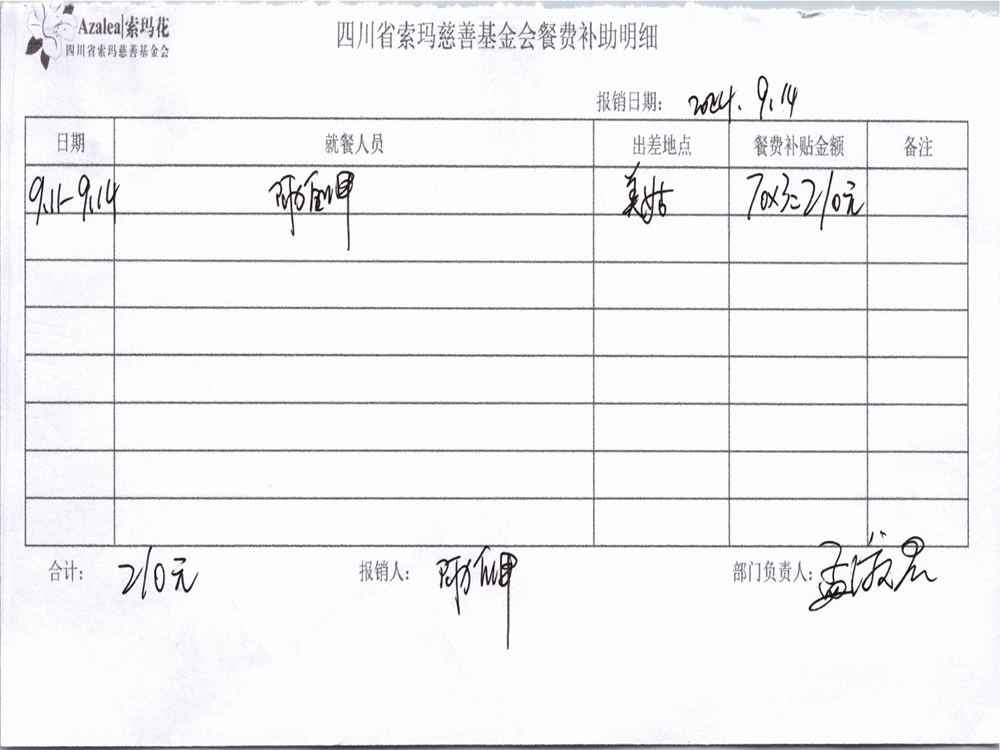 Azalea|索玛花
四川省索玛慈善基金会
四川省索玛慈善基金会餐费补助明细
报销日期: 2024.9.14
日期 就餐人员 出差地点 餐费补贴金额 备注
9.11-9.14 美姑 70×3=210元
合计: 210元 报销人: 部门负责人: